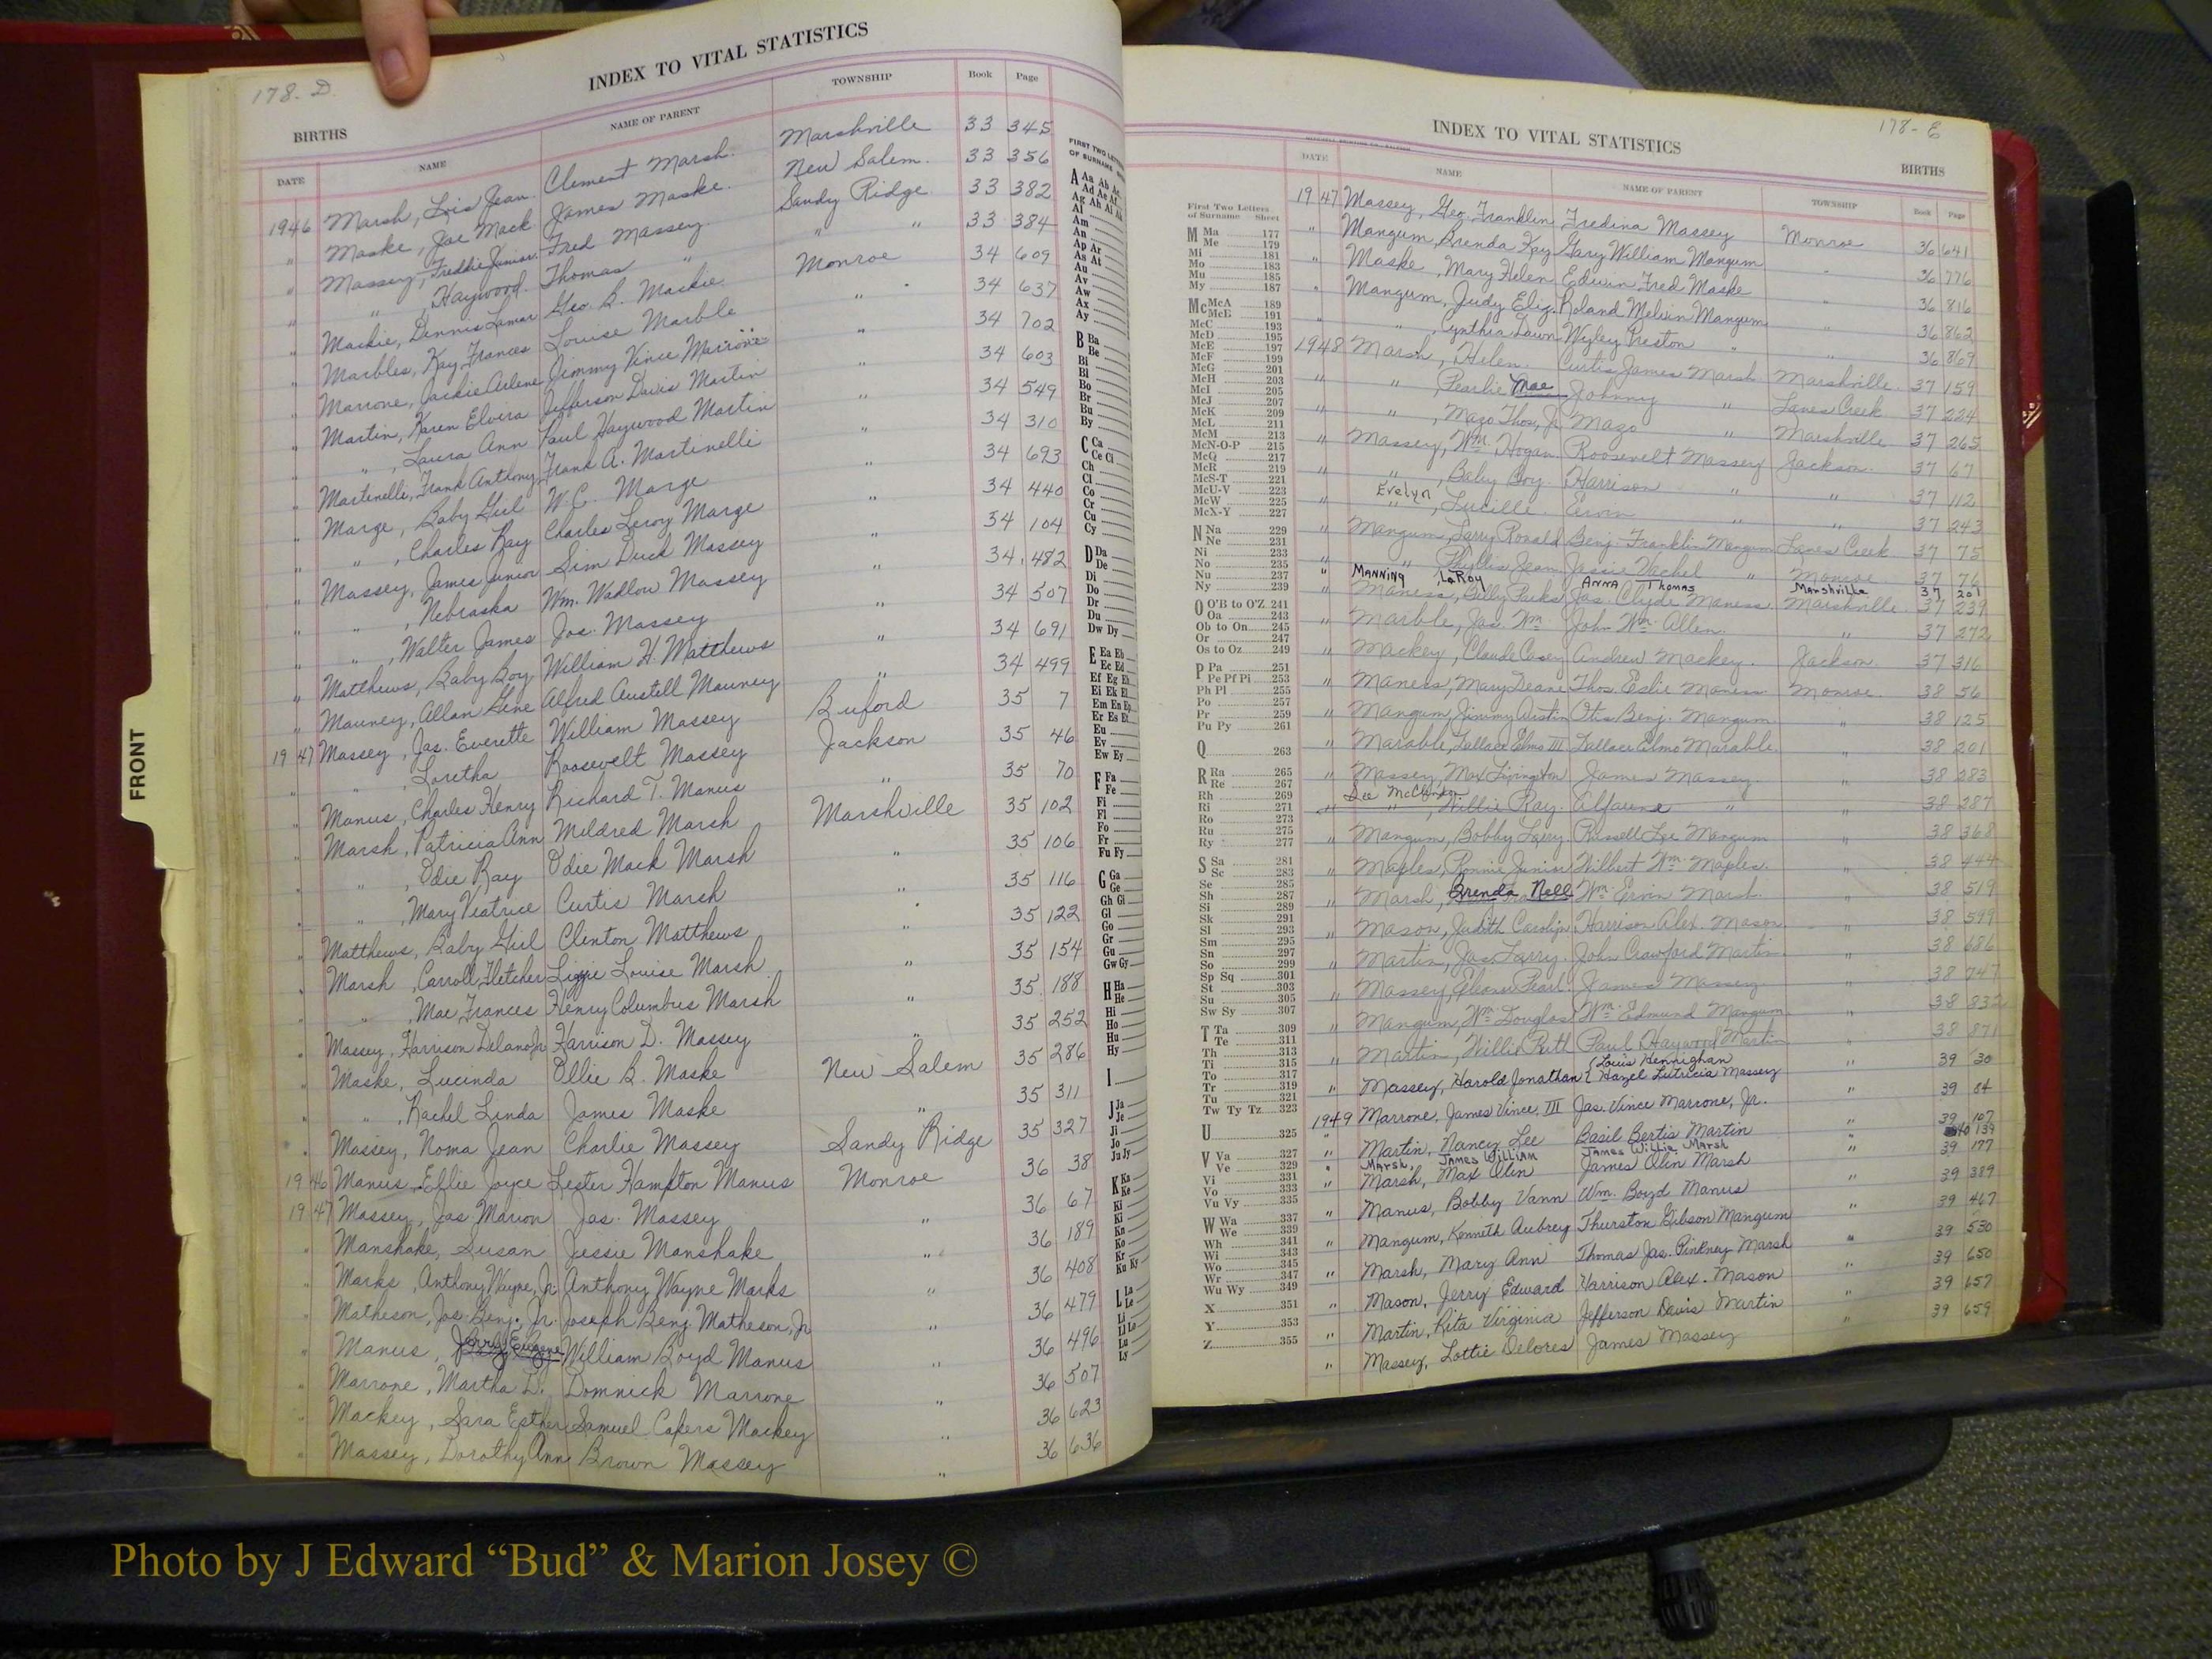 178-D
INDEX TO VITAL STATISTICS
BIRTHS
DATE NAME NAME OF PARENT TOWNSHIP Book Page
1946 Marsh, Lois Jean Clement Marsh. Marshville 33 345
" Maske, Joe Mack James Maske. New Salem. 33 356
" Massey, Freddie Junior. Fred Massey Sandy Ridge 33 382
" " , Haywood Thomas " " " 33 384
" Mackie, Dennis Lamar Geo. B. Mackie. Monroe 34 609
" Marbles, Kay Frances Louise Marble " 34 637
" Marrone, Jackie Arlene Jimmy Vince Marrone " 34 702
" Martin, Karen Elvira Jefferson Davis Martin " 34 603
" " , Laura Ann Paul Haywood Martin " 34 549
" Martinelli, Frank Anthony Frank A. Martinelli " 34 310
" Marge, Baby Girl W.C. Marge " 34 693
" " , Charles Ray Charles Leroy Marge " 34 440
" Massey, James Junior Sim Duck Massey " 34 104
" " , Nebraska Wm. Wadlow Massey " 34 482
" " , Walter James Jos. Massey " 34 507
" Matthews, Baby Boy William H. Matthews " 34 691
" Mauney, Allan Gene Alfred Austell Mauney " 34 499
1947 Massey, Jas. Everette William Massey Buford 35 7
" " , Loretha Roosevelt Massey Jackson 35 46
" Manus, Charles Henry Richard T. Manus " 35 70
" Marsh, Patricia Ann Mildred Marsh Marshville 35 102
" " , Odie Ray Odie Mack Marsh " 35 106
" " , Mary Veatrice Curtis Marsh " 35 116
" Matthews, Baby Girl Clinton Matthews " 35 122
" Marsh, Carroll Fletcher Lizzie Louise Marsh " 35 154
" " , Mae Frances Henry Columbus Marsh " 35 188
" Massey, Harrison Delano Jr Harrison D. Massey " 35 252
" Maske, Lucinda Ollie B. Maske New Salem 35 286
" " , Rachel Linda James Maske " 35 311
" Massey, Noma Jean Charlie Massey Sandy Ridge 35 327
1946 Manus, Effie Joyce Lester Hampton Manus Monroe 36 38
1947 Massey, Jas. Marion Jas. Massey " 36 67
" Manshake, Susan Jessie Manshake " 36 189
" Marks, Anthony Wayne, Jr. Anthony Wayne Marks " 36 408
" Matheson, Jos. Benj., Jr. Joseph Benj. Matheson, Jr " 36 479
" Manus, Jerry Eugene William Boyd Manus " 36 496
" Marrone, Martha D. Domnick Marrone " 36 507
" Mackey, Sara Esther Samuel Capers Mackey " 36 623
" Massey, Dorothy Ann Brown Massey " 36 636
FRONT
FIRST TWO LETTERS
OF SURNAME
A Aa Ab Ac
Ad Ae Af
Ag Ah Ai Ak
Al
Am
An
Ap Ar
As At
Au
Av
Aw
Ax
Ay
B Ba
Be
Bi
Bl
Bo
Br
Bu
By
C Ca
Ce Ci
Ch
Cl
Co
Cr
Cu
Cy
D Da
De
Di
Do
Dr
Du
Dw Dy
E Ea Eb
Ec Ed
Ef Eg Eh
Ei Ek El
Em En Ep
Er Es Et
Eu
Ev
Ew Ey
F Fa
Fe
Fi
Fl
Fo
Fr
Fu Fy
G Ga
Ge
Gh Gi
Gl
Go
Gr
Gu
Gw Gy
H Ha
He
Hi
Ho
Hu
Hy
I
J Ja
Je
Ji
Jo
Ju Jy
K Ka
Ke
Ki
Kl
Kn
Ko
Kr
Ku Ky
L La
Le
Li
Ll Lo
Lu
Ly
178-E
INDEX TO VITAL STATISTICS
BIRTHS
First Two Letters
of Surname Sheet
M Ma 177
Me 179
Mi 181
Mo 183
Mu 185
My 187
Mc McA 189
McB 191
McC 193
McD 195
McE 197
McF 199
McG 201
McH 203
McI 205
McJ 207
McK 209
McL 211
McM 213
McN-O-P 215
McQ 217
McR 219
McS-T 221
McU-V 223
McW 225
McX-Y 227
N Na 229
Ne 231
Ni 233
No 235
Nu 237
Ny 239
O O'B to O'Z 241
Oa 243
Ob to On 245
Or 247
Os to Oz 249
P Pa 251
Pe Pf Pi 253
Ph Pl 255
Po 257
Pr 259
Pu Py 261
Q 263
R Ra 265
Re 267
Rh 269
Ri 271
Ro 273
Ru 275
Ry 277
S Sa 281
Sc 283
Se 285
Sh 287
Si 289
Sk 291
Sl 293
Sm 295
Sn 297
So 299
Sp Sq 301
St 303
Su 305
Sw Sy 307
T Ta 309
Te 311
Th 313
Ti 315
To 317
Tr 319
Tu 321
Tw Ty Tz 323
U 325
V Va 327
Ve 329
Vi 331
Vo 333
Vu Vy 335
W Wa 337
We 339
Wh 341
Wi 343
Wo 345
Wr 347
Wu Wy 349
X 351
Y 353
Z 355
DATE NAME NAME OF PARENT TOWNSHIP Book Page
1947 Massey, Geo. Franklin Fredina Massey Monroe 36 641
" Mangum, Brenda Kay Gary William Mangum " 36 776
" Maske, Mary Helen Edwin Fred Maske " 36 816
" Mangum, Judy Eliz. Roland Melvin Mangum " 36 862
" " , Cynthia Dawn Wyley Preston " " 36 869
1948 Marsh, Helen Curtis James Marsh Marshville 37 159
" " , Pearlie Mae Johnny " Lanes Creek 37 224
" " , Mazo Thos, Jr Mazo " Marshville 37 265
" Massey, Wm. Hogan Roosevelt Massey Jackson. 37 67
" " , Baby Boy. Harrison " " 37 112
" " , Evelyn Lucille Ervin " " 37 243
" Mangum, Larry Ronald Benj. Franklin Mangum Lanes Creek 37 75
" " , Phyllis Jean Jessie Vachel " Monroe 37 76
" MANNING, LaRoy ANNA Thomas Marshville 37 201
" Maness, Billy Parks Jas. Clyde Maness Marshville. 37 239
" Marble, Jas. Wm John Wm. Allen. " 37 272
" Mackey, Claude Casey Andrew Mackey. Jackson. 37 316
" Maness, Mary Deane Thos. Eslie Maness Monroe. 38 56
" Mangum, Jimmy Austin Otis Benj. Mangum " 38 125
" Marable, Lallace Elmo III Lallace Elmo Marable. " 38 201
" Massey, Max Livingston James Massey. " 38 283
See McClendon
" " , Willie Ray. Elfaune " " 38 287
" Mangum, Bobby Larry Russell Lee Mangum " 38 368
" Maples, Ronnie Junior Wilbert Wm. Maples. " 38 444
" Marsh, Brenda Nell Wm Ervin Marsh. " 38 519
" Mason, Judith Carolyn Harrison Alex. Mason " 38 599
" Martin, Jas. Larry. John Crawford Martin. " 38 686
" Massey, Eleanor Pearl. James Massey " 38 747
" Mangum, Wm. Douglas Wm. Edmund Mangum " 38 832
" Martin, Willie Ruth Paul Haywood Martin " 38 871
" Massey, Harold Jonathan { Louis Hennighan Hazel Lutricia Massey " 39 30
1949 Marrone, James Vince, III Jas. Vince Marrone, Jr. " 39 84
" Martin, Nancy Lee Basil Bertis Martin " 39 107
" Marsh, JAMES WILLIAM JAMES Willie Marsh " 40 139
" Marsh, Max Olin James Olin Marsh " 39 177
" Manus, Bobby Vann Wm. Boyd Manus " 39 389
" Mangum, Kenneth Aubrey Thurston Gibson Mangum " 39 467
" Marsh, Mary Ann Thomas Jas. Pinkney Marsh " 39 530
" Mason, Jerry Edward Harrison Alex. Mason " 39 650
" Martin, Rita Virginia Jefferson Davis Martin " 39 657
" Massey, Lottie Delores James Massey " 39 659
Photo by J Edward “Bud” & Marion Josey ©